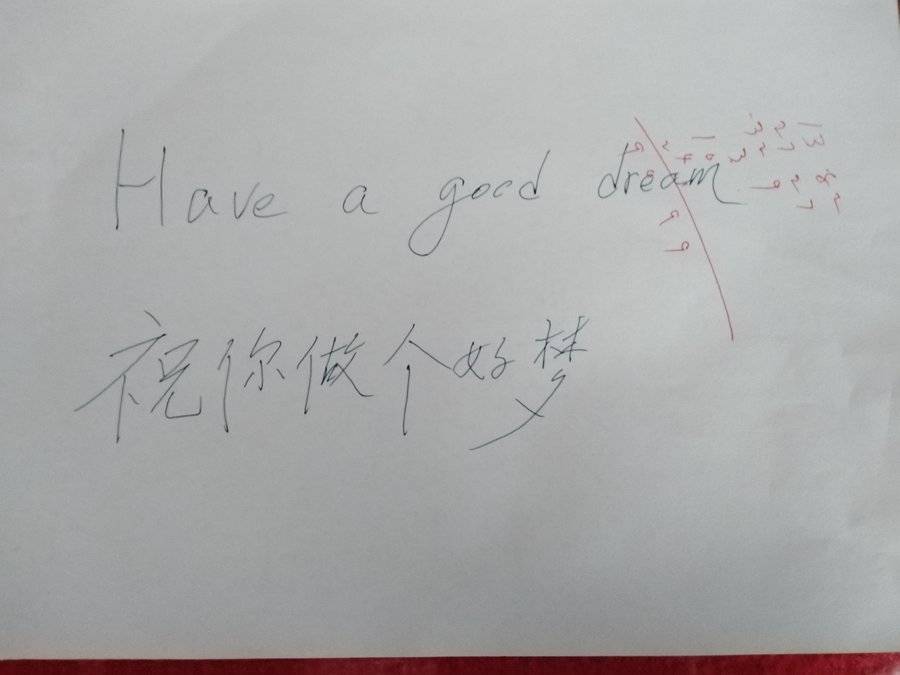 Have a good dream
祝你做个好梦